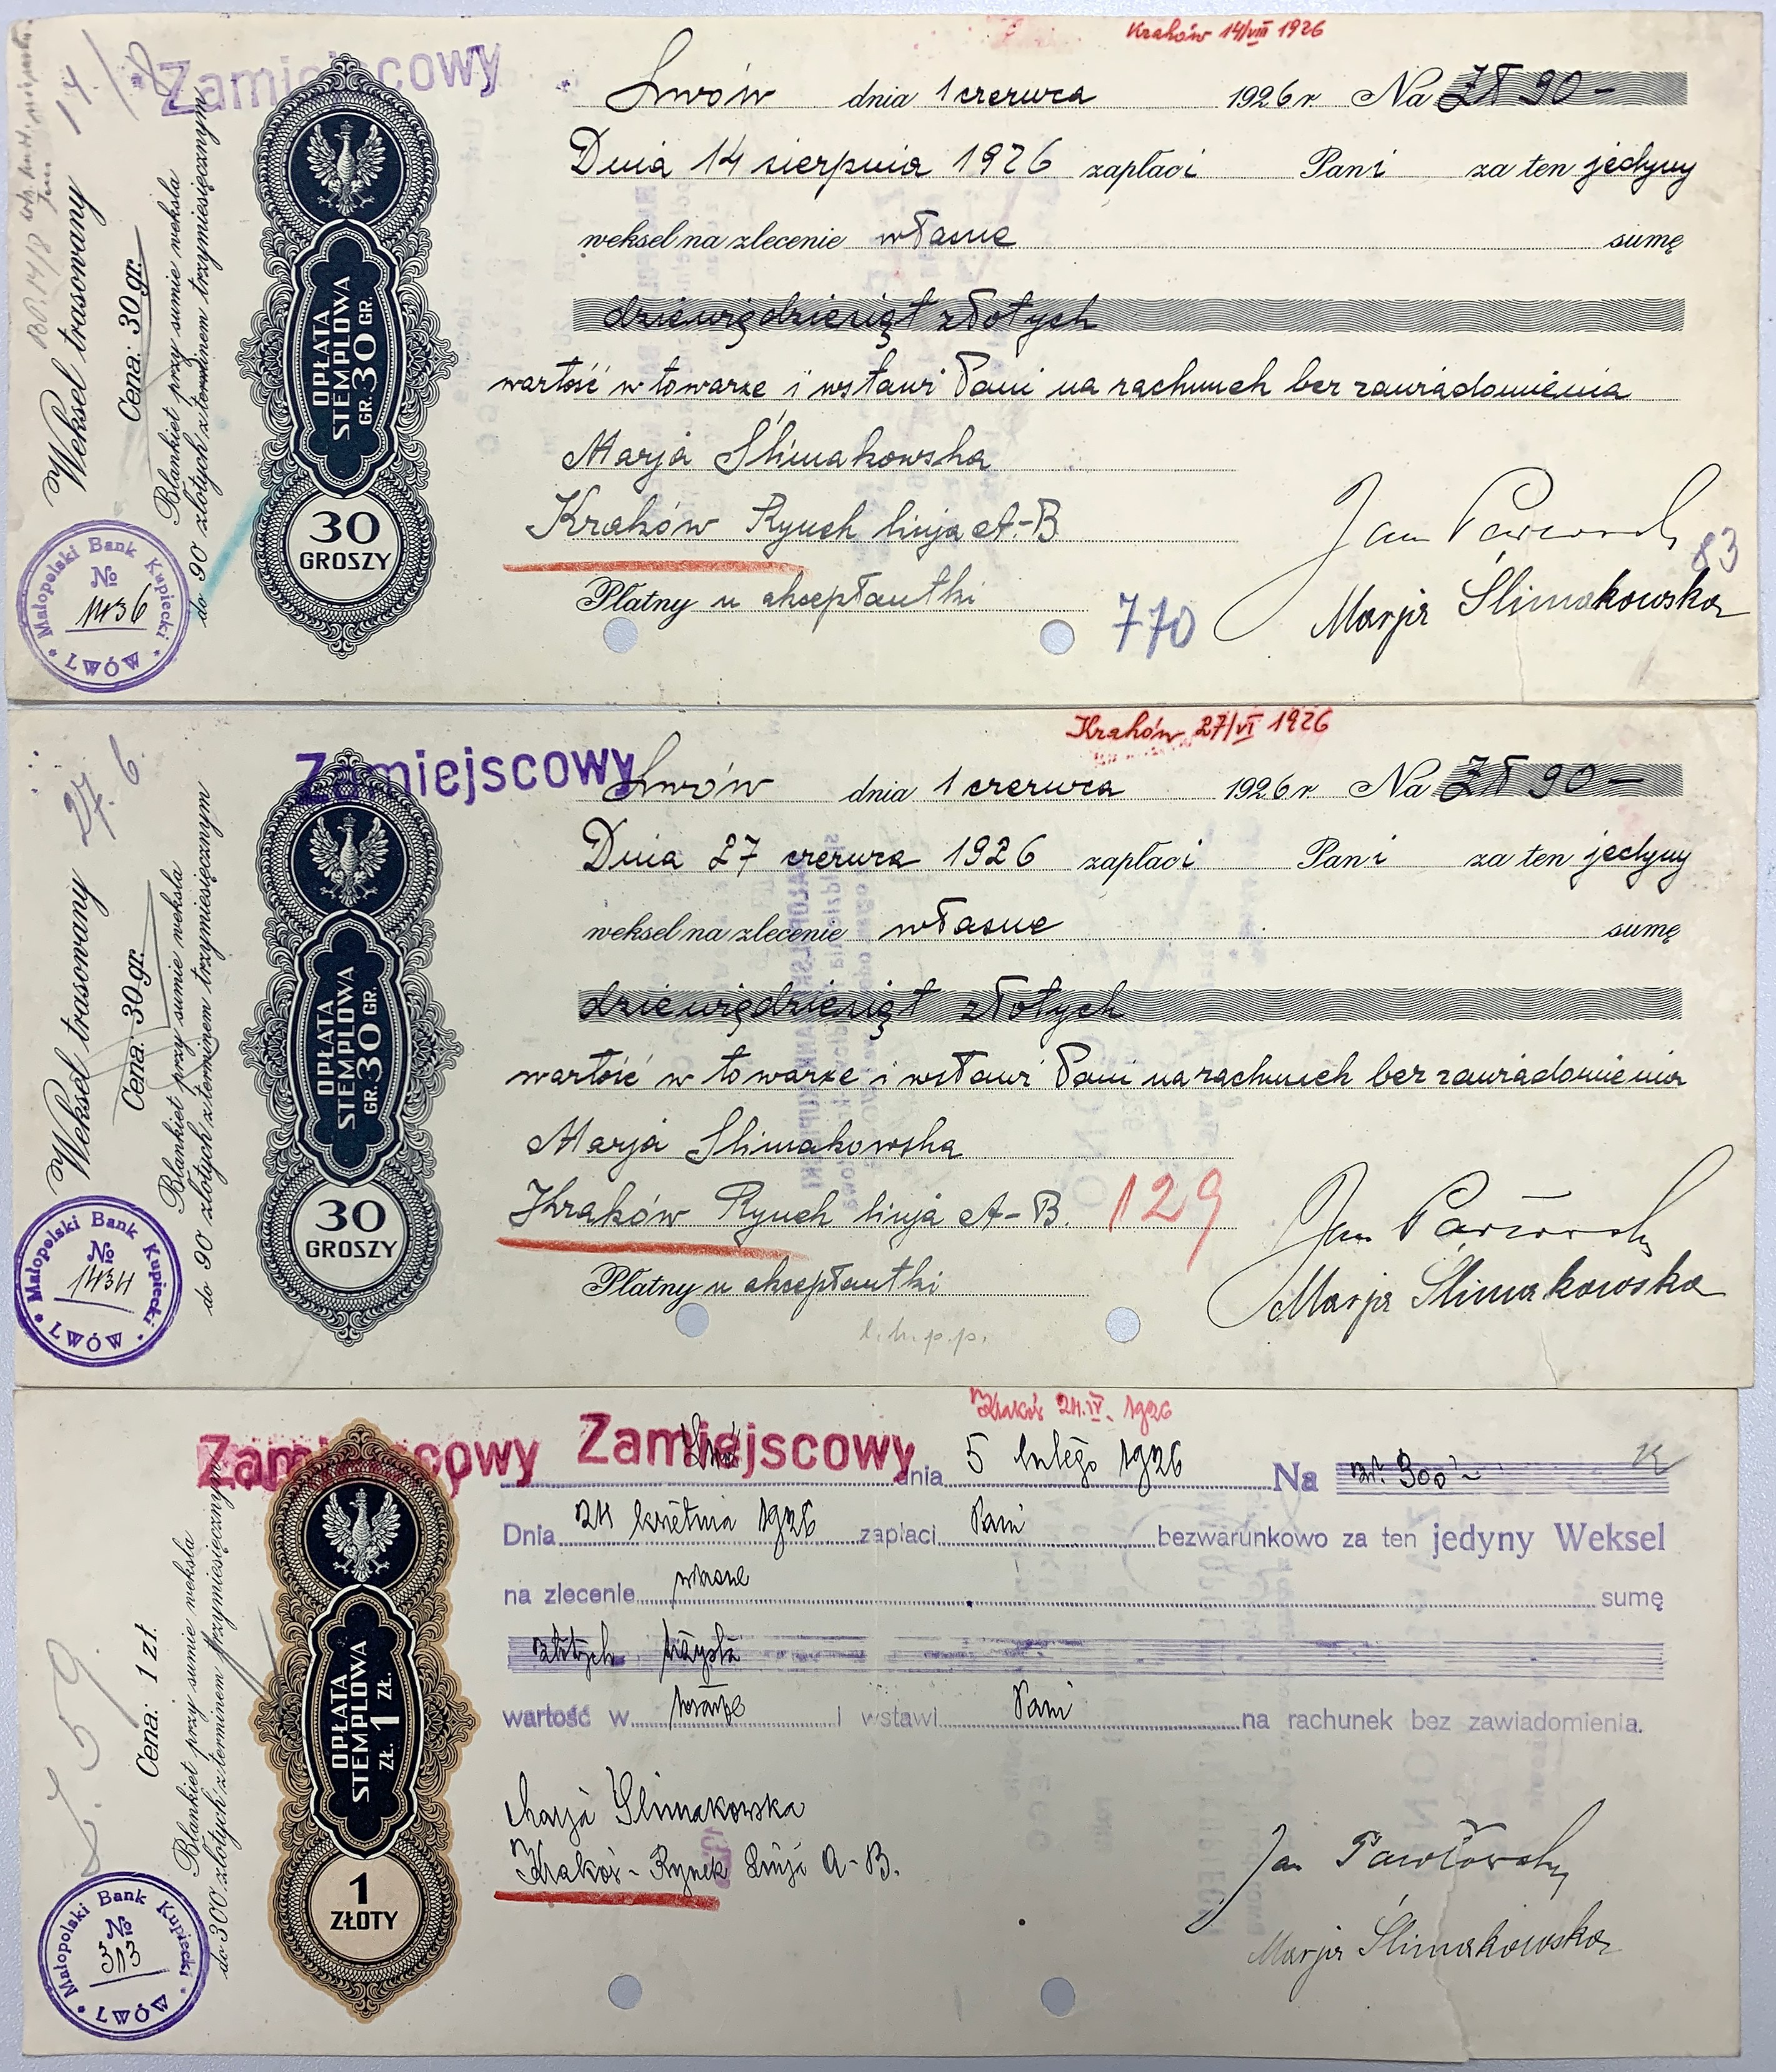 Kraków 14/VIII 1926
Zamiejscowy
14./8
Lwów dnia 1 czerwca 1926 r. Na Zł 90 –
Dnia 14 sierpnia 1926 zapłaci Pani za ten jedyny
weksel na zlecenie własne sumę
dziewięćdziesiąt złotych
wartość w towarze i wstawi Pani na rachunek bez zawiadomienia
Marja Ślimakowska
Kraków Rynek linja A-B
Płatny u akceptantki
770
83
Jan
Marja Ślimakowska
Weksel trasowany
Cena: 30 gr.
Blankiet przy sumie weksla
do 90 złotych z terminem trzymiesięcznym
OPŁATA
STEMPLOWA
GR. 30 GR.
30
GROSZY
Małopolski Bank Kupiecki
No
1436
LWÓW
Kraków 27/VI 1926
Zamiejscowy
27. 6.
Lwów dnia 1 czerwca 1926 r. Na Zł 90 –
Dnia 27 czerwca 1926 zapłaci Pani za ten jedyny
weksel na zlecenie własne sumę
dziewięćdziesiąt złotych
wartość w towarze i wstawi Pani na rachunek bez zawiadomienia
Marja Ślimakowska
Kraków Rynek linja A-B.
129
Płatny u akceptantki
Jan
Marja Ślimakowska
Weksel trasowany
Cena: 30 gr.
Blankiet przy sumie weksla
do 90 złotych z terminem trzymiesięcznym
OPŁATA
STEMPLOWA
GR. 30 GR.
30
GROSZY
Małopolski Bank Kupiecki
No
1434
LWÓW
Kraków 24.IV. 1926
Zamiejscowy Zamiejscowy
dnia 5 lutego 1926 Na zł. 300
Dnia 24 kwietnia 1926 zapłaci Pani bezwarunkowo za ten jedyny Weksel
na zlecenie własne sumę
złotych trzysta
wartość w towarze i wstawi Pani na rachunek bez zawiadomienia.
Marja Ślimakowska
Kraków - Rynek Linja A-B.
Jan
Marja Ślimakowska
Cena: 1 zł.
Blankiet przy sumie weksla
do 300 złotych z terminem trzymiesięcznym
OPŁATA
STEMPLOWA
ZŁ. 1 ZŁ.
1
ZŁOTY
Małopolski Bank Kupiecki
No
313
LWÓW